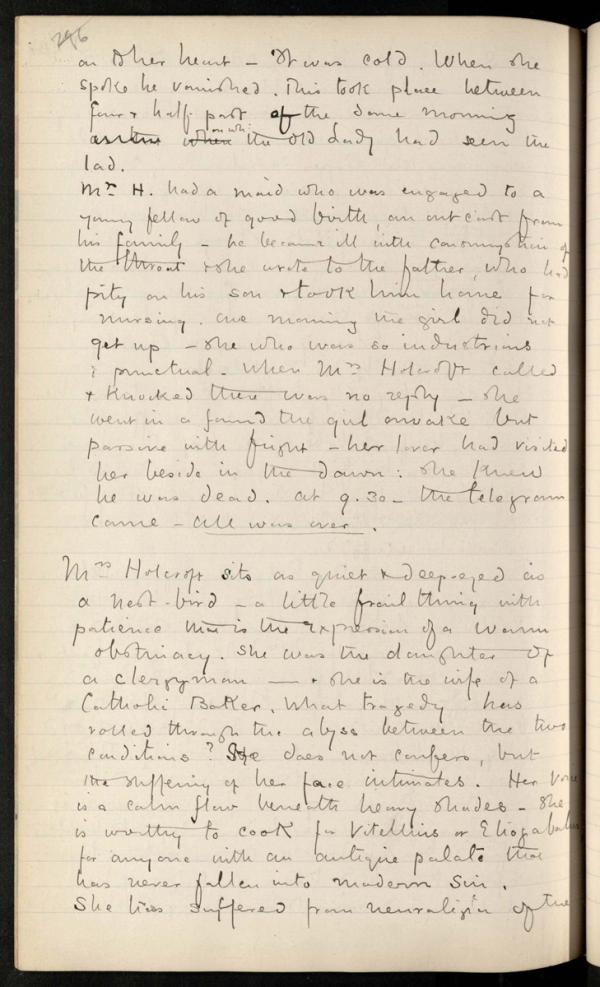 296
on to her heart – It was cold. When she
spoke he vanished. This took place between
four & half-past of the same morning
when on wh: the old Lady had seen the
lad.
Mrs H. had a maid who was engaged to a
young fellow of good birth, an outcast from
his family – he became ill with consumption of
the throat & she wrote to the father, who had
pity on his son & took him home for
nursing. One morning the girl did not
get up – she who was so industrious
& punctual. When Mrs Holcroft called
& knocked there was no reply – she
went in & found the girl awake but
passive with fright – her lover had visited
her beside in the dawn: she knew
he was dead. At 9.30 – the telegram
came – all was over.
Mrs Holcroft sits as quiet & deep-eyed as
a nest-bird – a little frail thing with
patience that is the expression of a warm
obstinacy. She was the daughter of
a clergyman — & she is the wife of a
Catholic Baker. What tragedy has
rolled through the abyss between the two
conditions? She does not confess, but
the suffering of her face intimates. Her voice
is a calm flow beneath heavy shades – She
is worthy to cook for Vitellius or Eliogabalus
for anyone with an antique palate that
has never fallen into modern sin.
She has suffered from neuralgia of the